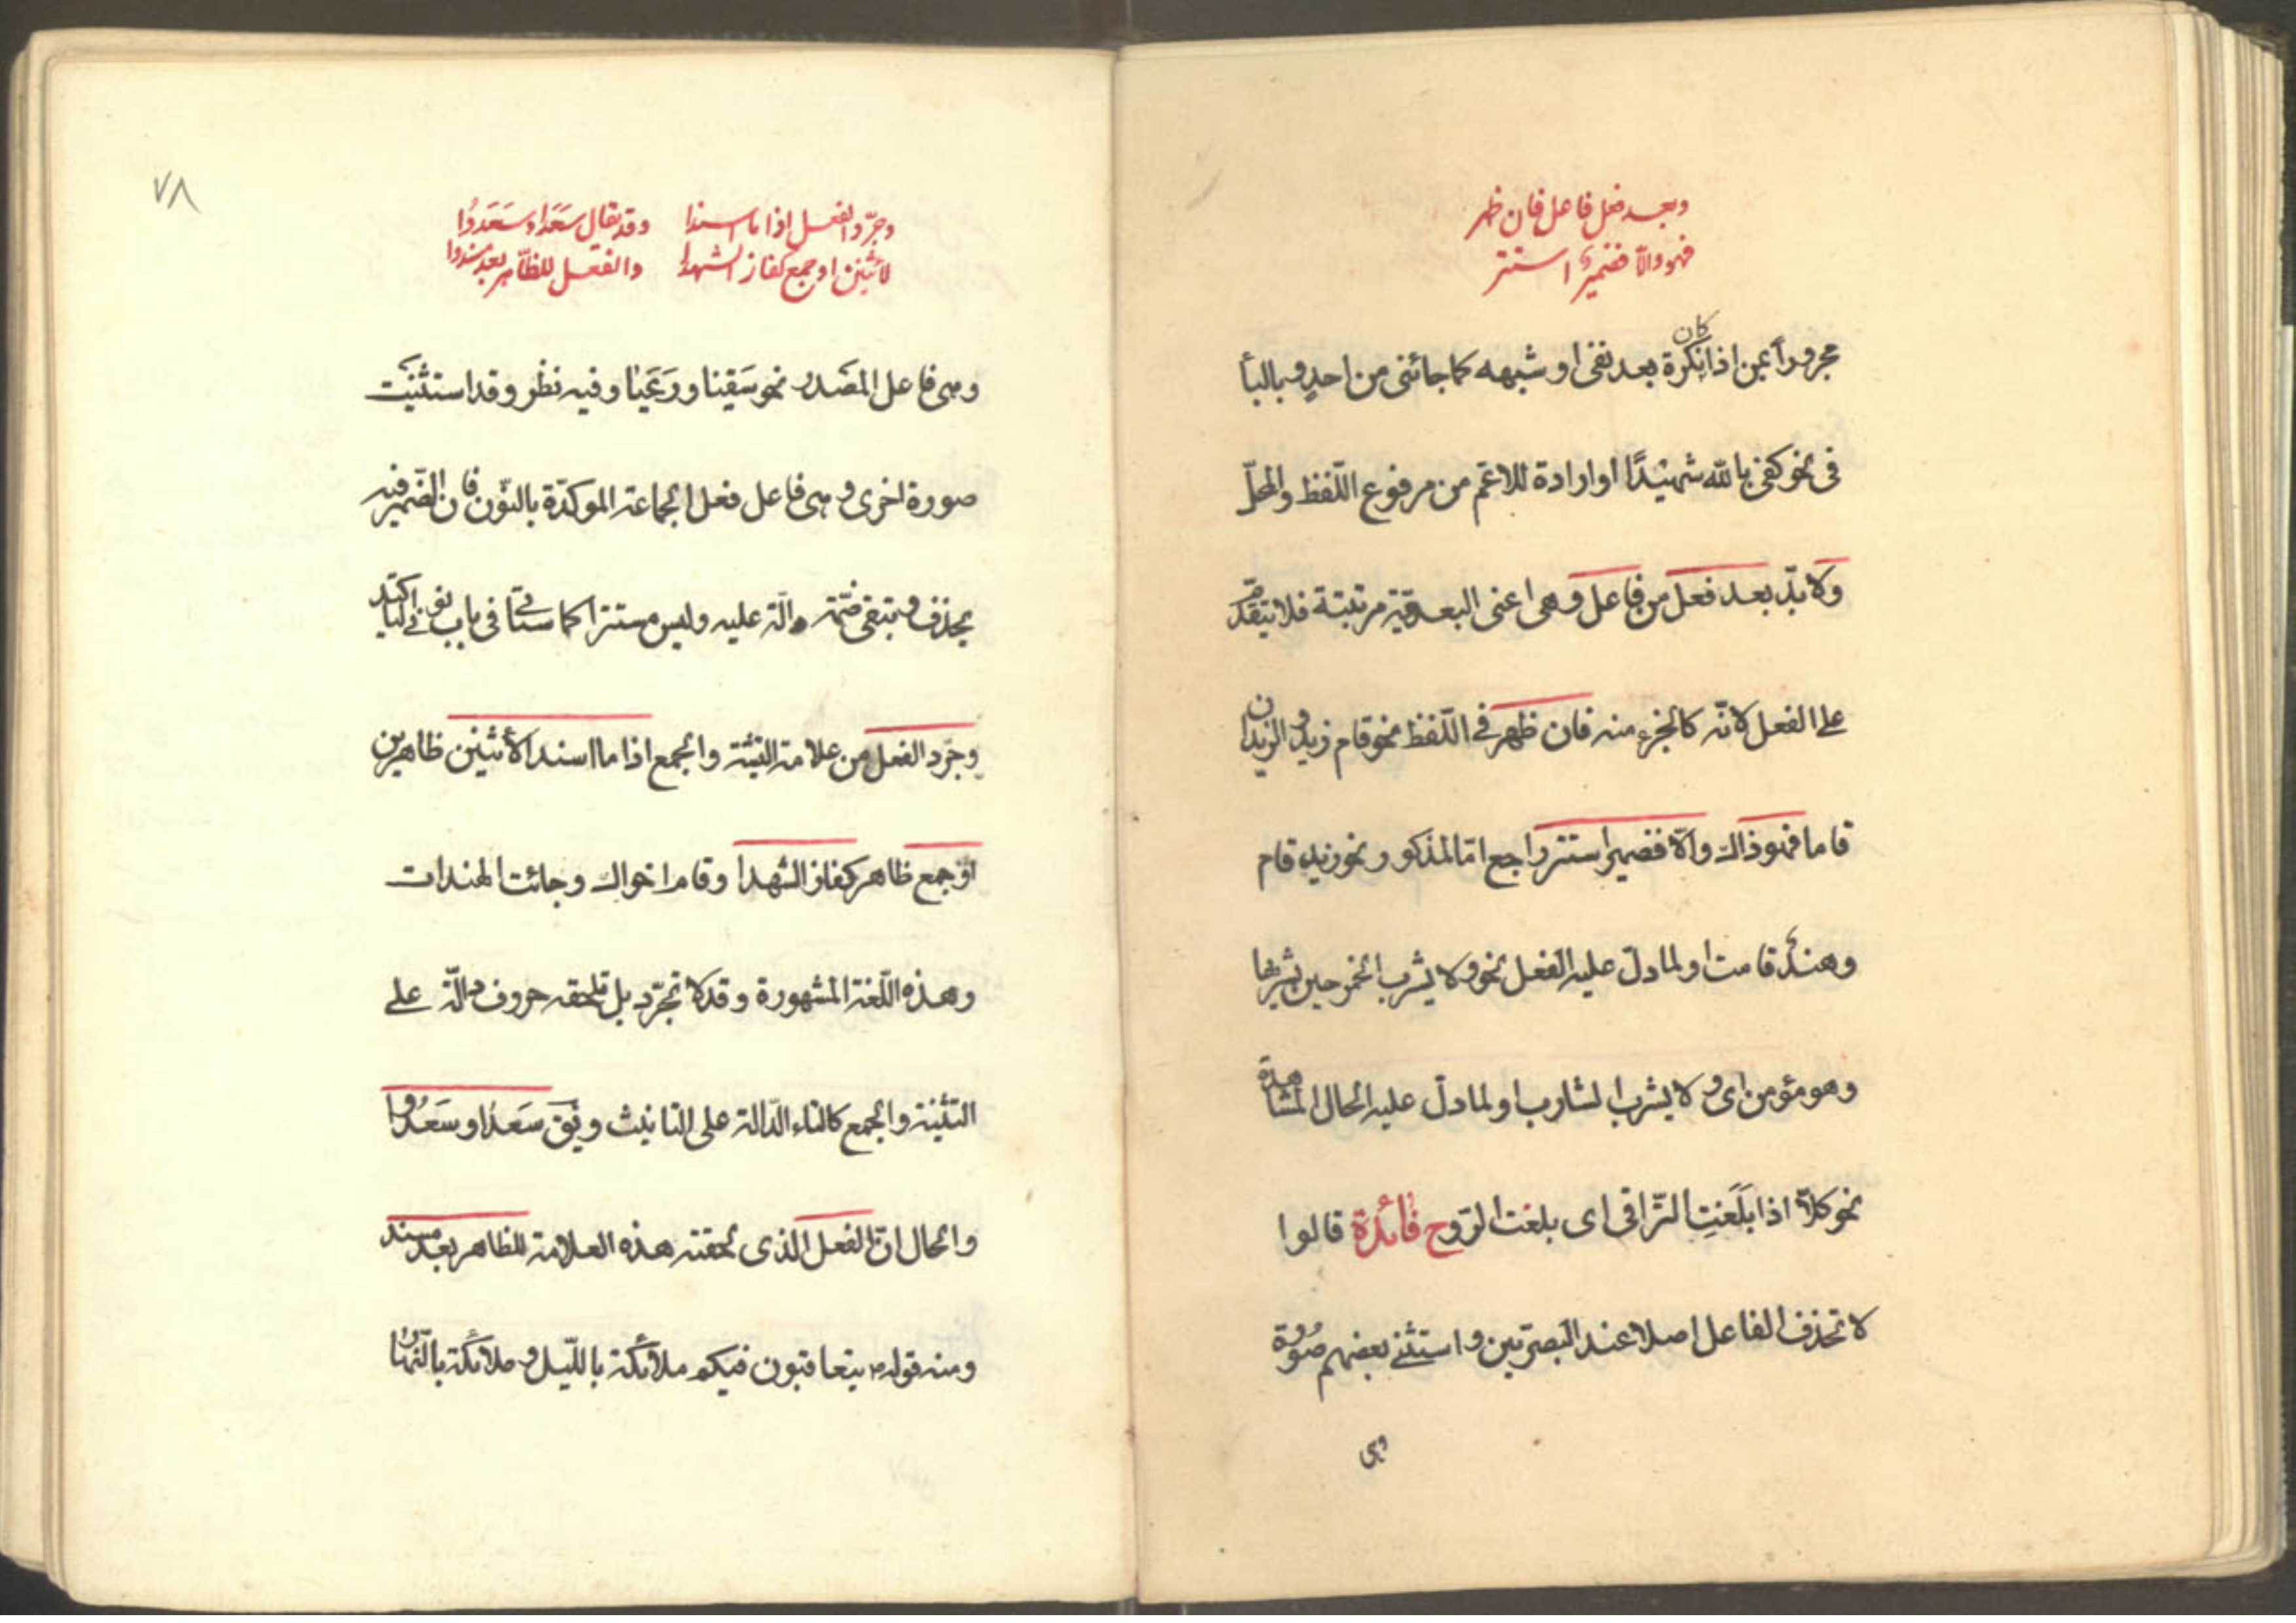 وبعد فعل فاعل فان ظهر
فهو والا فضمير استتر
مجرورا بمن اذا كان نكرة بعد نفى او شبهه كما جائنى من احد وبالبأ
فى نحو كفى بالله شهيدًا او ارادة للاعم من مرفوع اللّفظ والمحلّ
ولابدّ بعد فعل من فاعل وهى اعنى البعديّة مرتبتة فلا يتقدّم
على الفعل لانّه كالجزء منه فان ظهر فى اللّفظ نحو قام زيد و الزيدان
قاما فهو ذاك والّا فضمير استتر راجع امّا لمذكور نحو زيد قام
وهندٌ قامت او لما دلّ عليه الفعل نحو ولا يشرب الخمر حين يشربها
وهو مؤمن اى ولا يشرب الشارب او لما دلّ عليه الحال المشاهدة
نحو كلّا اذا بَلَغَتِ التّراقى اى بلغت الرّوح فائدة قالوا
لا تحذف الفاعل اصلا عند البصريّين و استثنى بعضهم صورة
وهى
٧٨
وجرّد الفعل اذا ما اسندا وقد يقال سَعَدا وسَعَدُوا
لاثنين او جمع كفاز الشهدا والفعل للظّاهر بعد مسند
وهى فاعل المصدر نحو سَقينا ورَعَينا وفيه نظر وقد استثنيت
صورة اخرى وهى فاعل فعل الجماعة الموكدّة بالنّون فان الضّمير فيه
يحذف وتبقى ضمّة دالّة عليه وليس مستترا كما سيأتى فى باب نونى التاكيد
وجرّد الفعل من علامة التثنية والجمع اذا ما اسند لأثنين ظاهرين
او جمع ظاهر كفاز الشهدا وقام اخواك وجائت الهندات
وهذه اللّغة المشهورة وقد لا تجرّد بل تلحقه حروف دالّة على
التثنية والجمع كالتاء الدّالة على التانيث ويق سَعَدا وسَعَدُوا
والحال انّ الفعل الذى لحقته هذه العلامة للظاهر بعد مسند
ومنه قوله ص يتعاقبون فيكم ملائكة باللّيل وملائكة بالنّهار